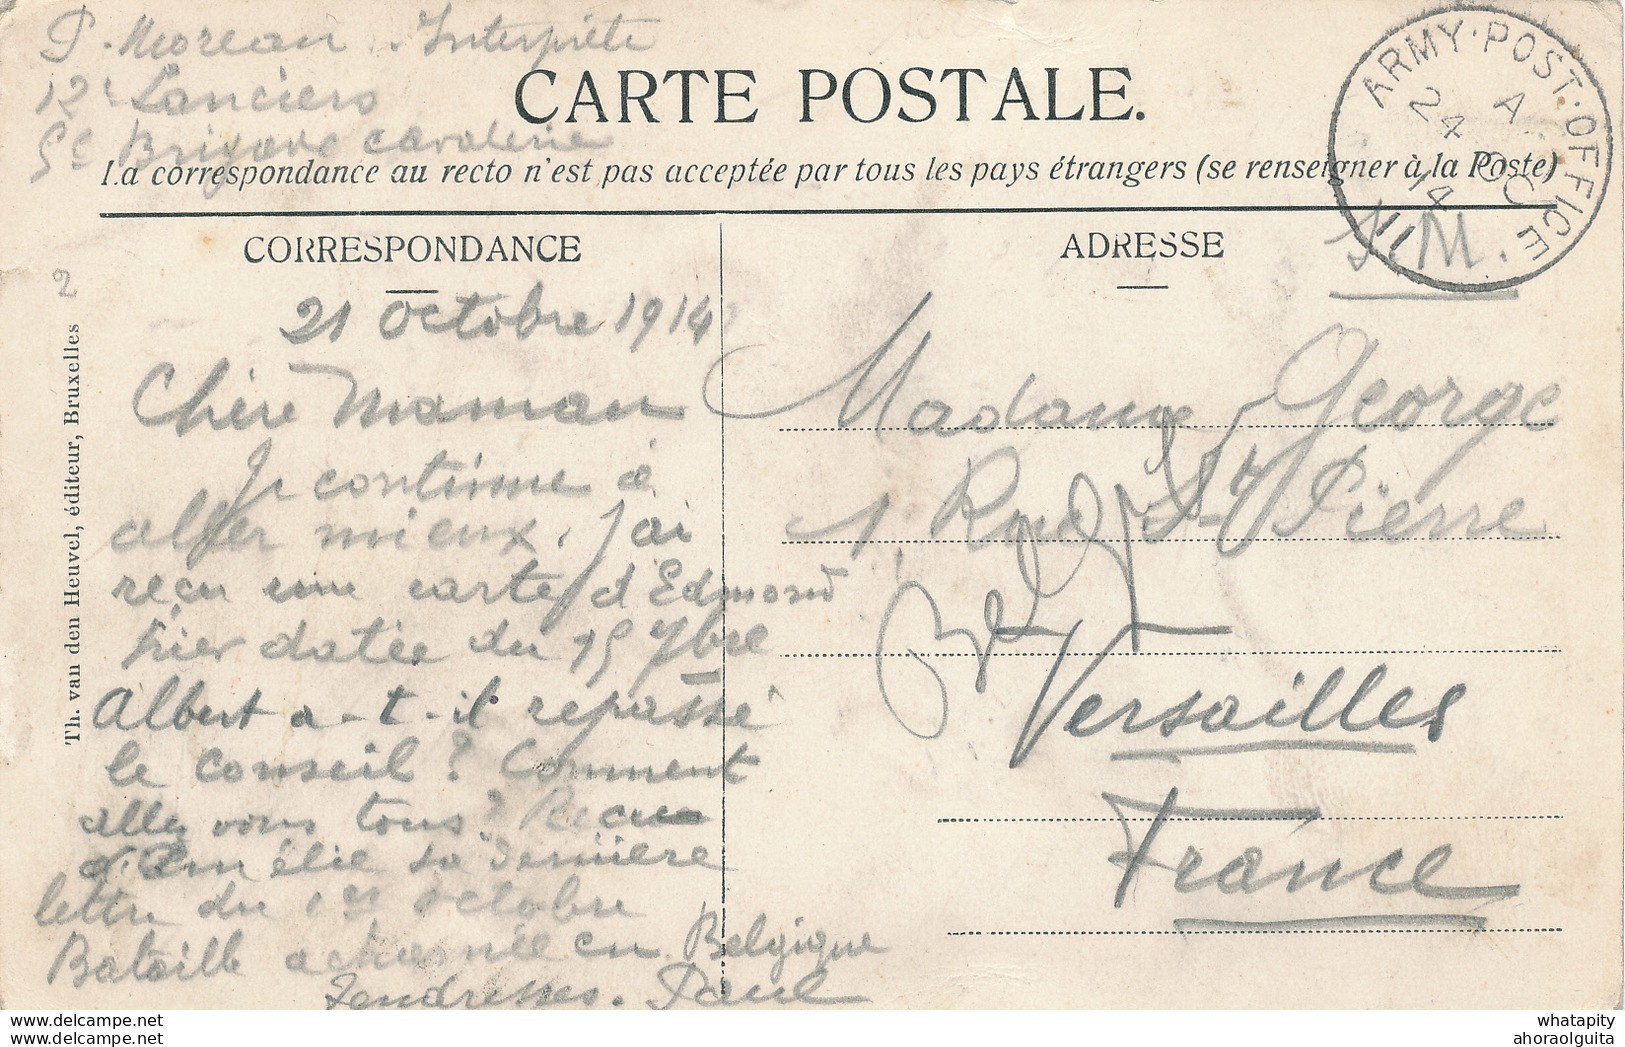 P. Moreau. Interprète
12e Lanciers
5e Brigade cavalerie
CARTE POSTALE.
La correspondance au recto n'est pas acceptée par tous les pays étrangers (se renseigner à la Poste)
ARMY·POST·OFFICE·
A
24 OC
14
S.M.
CORRESPONDANCE
ADRESSE
2
Th. van den Heuvel, éditeur, Bruxelles
21 octobre 1914
Chère Maman
Je continue à
aller mieux. J'ai
reçu une carte d'Edmond
hier datée du 15 7bre
Albert a-t-il repassé
le conseil ? Comment
allez vous tous ? Reçu
d'Amélie sa dernière
lettre du 1er octobre
Bataille acharnée en Belgique
Tendresses. Paul
Madame George
1 Rue St Pierre
Versailles
France
whatapity
ahoraolguita